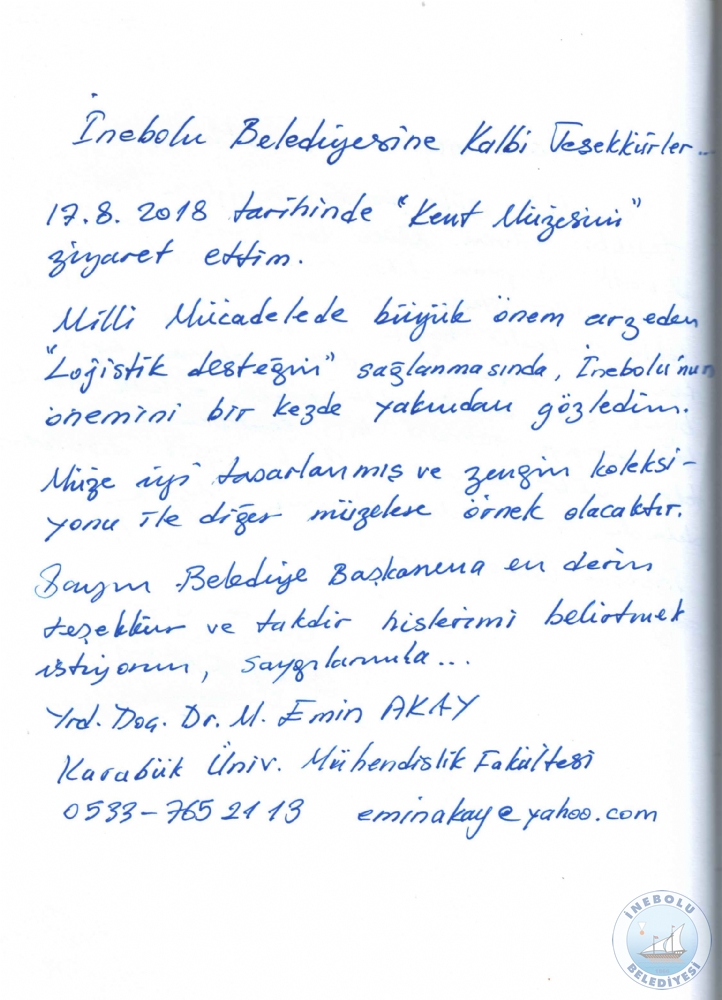 İnebolu Belediyesine Kalbi Teşekkürler...
17.8.2018 tarihinde "Kent Müzesini"
ziyaret ettim.
Milli Mücadelede büyük önem arzeden
"Loğistik desteğin" sağlanmasında, İnebolu'nun
önemini bir kezde yakından gözledim.
Müze iyi tasarlanmış ve zengin koleksi-
yonu ile diğer müzelere örnek olacaktır.
Sayın Belediye Başkanına en derin
teşekkür ve takdir hislerimi belirtmek
istiyorum, saygılarımla...
Yrd. Doç. Dr. M. Emin AKAY
Karabük Üniv. Mühendislik Fakültesi
0533-765 21 13 eminakay@yahoo.com
İNEBOLU
BELEDİYESİ